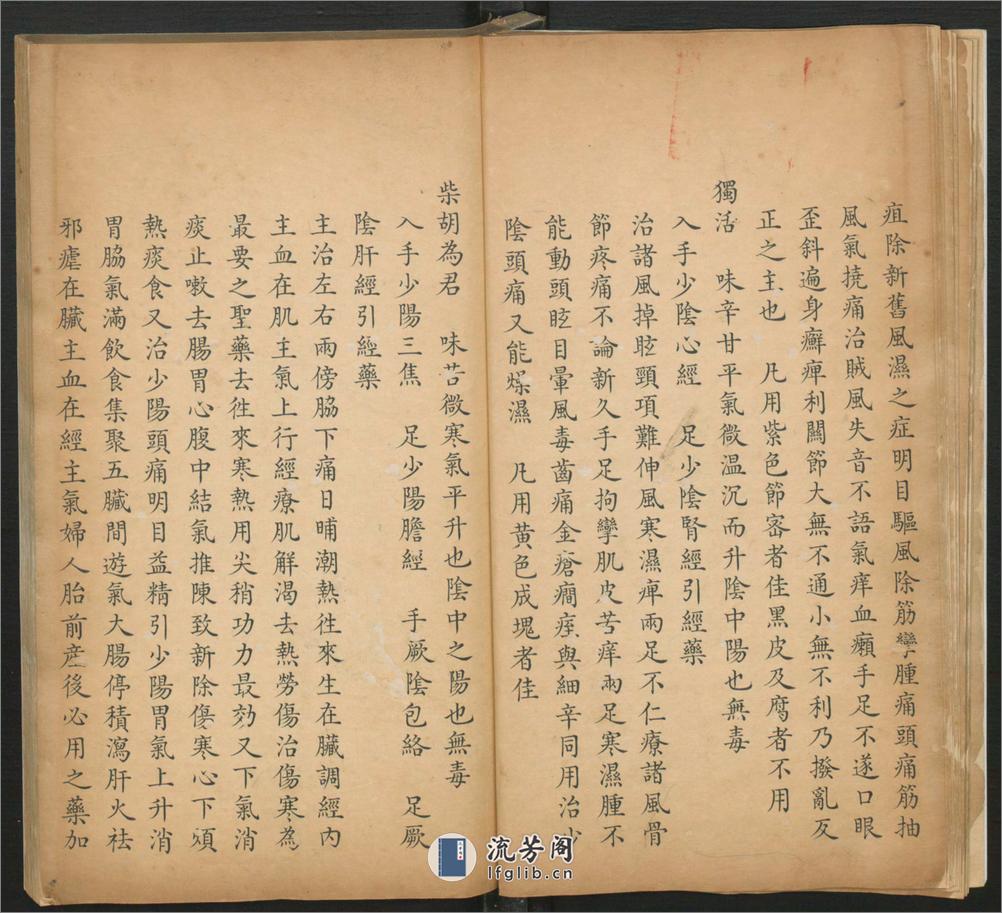 疽除新舊風濕之症明目驅風除筋攣腫痛頭痛筋抽
風氣撓痛治賊風失音不語氣痒血癩手足不遂口眼
歪斜遍身癬痺利關節大無不通小無不利乃撥亂反
正之主也　凡用紫色節密者佳黑皮及腐者不用
獨活　味辛甘平氣微温沉而升陰中陽也無毒
入手少陰心經　足少陰腎經引經藥
治諸風掉眩頸項難伸風寒濕痺兩足不仁療諸風骨
節疼痛不論新久手足拘攣肌皮苦痒兩足寒濕腫不
能動頭眩目暈風毒齒痛金瘡癎痓與細辛同用治少
陰頭痛又能燥濕　凡用黃色成塊者佳
柴胡為君　味苦微寒氣平升也陰中之陽也無毒
入手少陽三焦　足少陽膽經　手厥陰包絡　足厥
陰肝經引經藥
主治左右兩傍脇下痛日晡潮熱徃來生在臟調經內
主血在肌主氣上行經療肌解渴去熱勞傷治傷寒為
最要之聖藥去徃來寒熱用尖稍功力最効又下氣消
痰止嗽去腸胃心腹中結氣推陳致新除傷寒心下煩
熱痰食又治少陽頭痛明目益精引少陽胃氣上升消
胃脇氣滿飲食集聚五臟間遊氣大腸停積瀉肝火祛
邪瘧在臟主血在經主氣婦人胎前產後必用之藥加
流芳阁
lfglib.cn